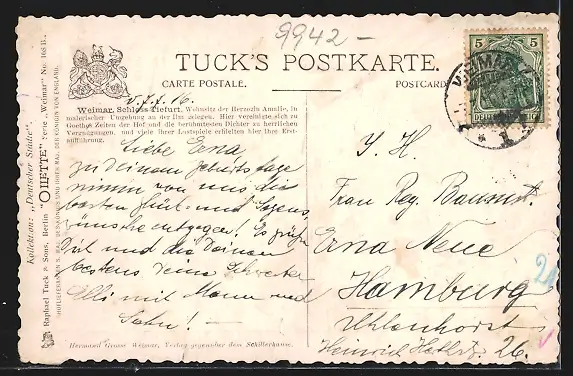 9942 –
TUCK'S POSTKARTE.
CARTE POSTALE.
POSTCARD
5 5
DEUTSCHES REICH
WEIMAR
Weimar, Schloss Tiefurt. Wohnsitz der Herzogin Amalie, in
malerischer Umgebung an der Ilm gelegen. Hier vereinigte sich zu
Goethes Zeiten der Hof und die berühmtesten Dichter zu herrlichen
Vergnügungen, und viele ihrer Lustspiele erhielten hier ihre Erst-
aufführung.
Kollektion: „Deutscher Städte".
Raphael Tuck & Sons, Berlin "OILETTE" Serie „Weimar" No. 168 B.
Liebe Erna
zu Deinem Geburtstage
nimm von uns die
besten Glück- und Segens
wünsche entgegen! Es grüßen
Dich und die Deinen
bestens Deine Schwester
Elli mit Mann und
Sohn! –
Frau Reg.
Erna
Hamburg
Uhlenhorst
Heinrich 26.
Hermann Grosse Weimar, Verlag gegenüber dem Schillerhause.